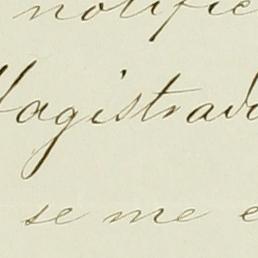 notifie
Magistrado
se me e